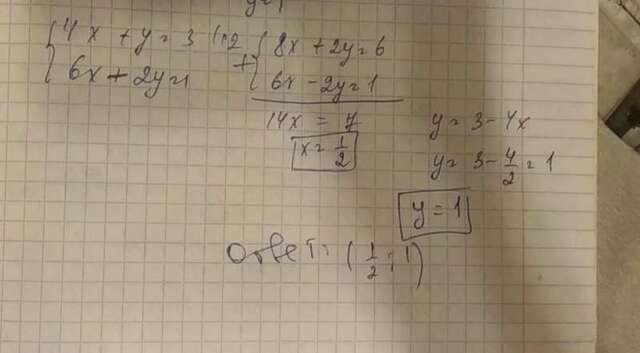 { 4x + y = 3 | ·2
6x + 2y = 1
+ { 8x + 2y = 6
6x - 2y = 1
14x = 7
x = 1/2
y = 3 - 4x
y = 3 - 4/2 = 1
y = 1
Ответ: (1/2; 1)